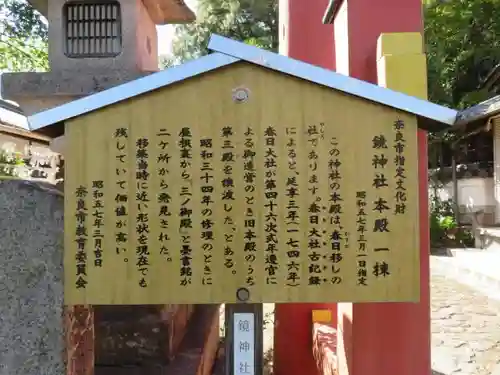 奈良市指定文化財
鏡神社本殿 一棟
昭和五七年三月一日指定
この神社の本殿は、春日移しの
社であります。春日大社古記録
によると、延享三年(一七四六年)
春日大社が第四十六次式年遷宮に
よる御造営のとき旧本殿のうち
第三殿を譲渡した、とある。
昭和三十四年の修理のときに
昼損裏から「三ノ御殿」と墨書銘が
二ヶ所から発見された。
移築当時に近い形状を現在でも
残していて価値が高い。
昭和五七年三月吉日
奈良市教育委員会
鏡神社